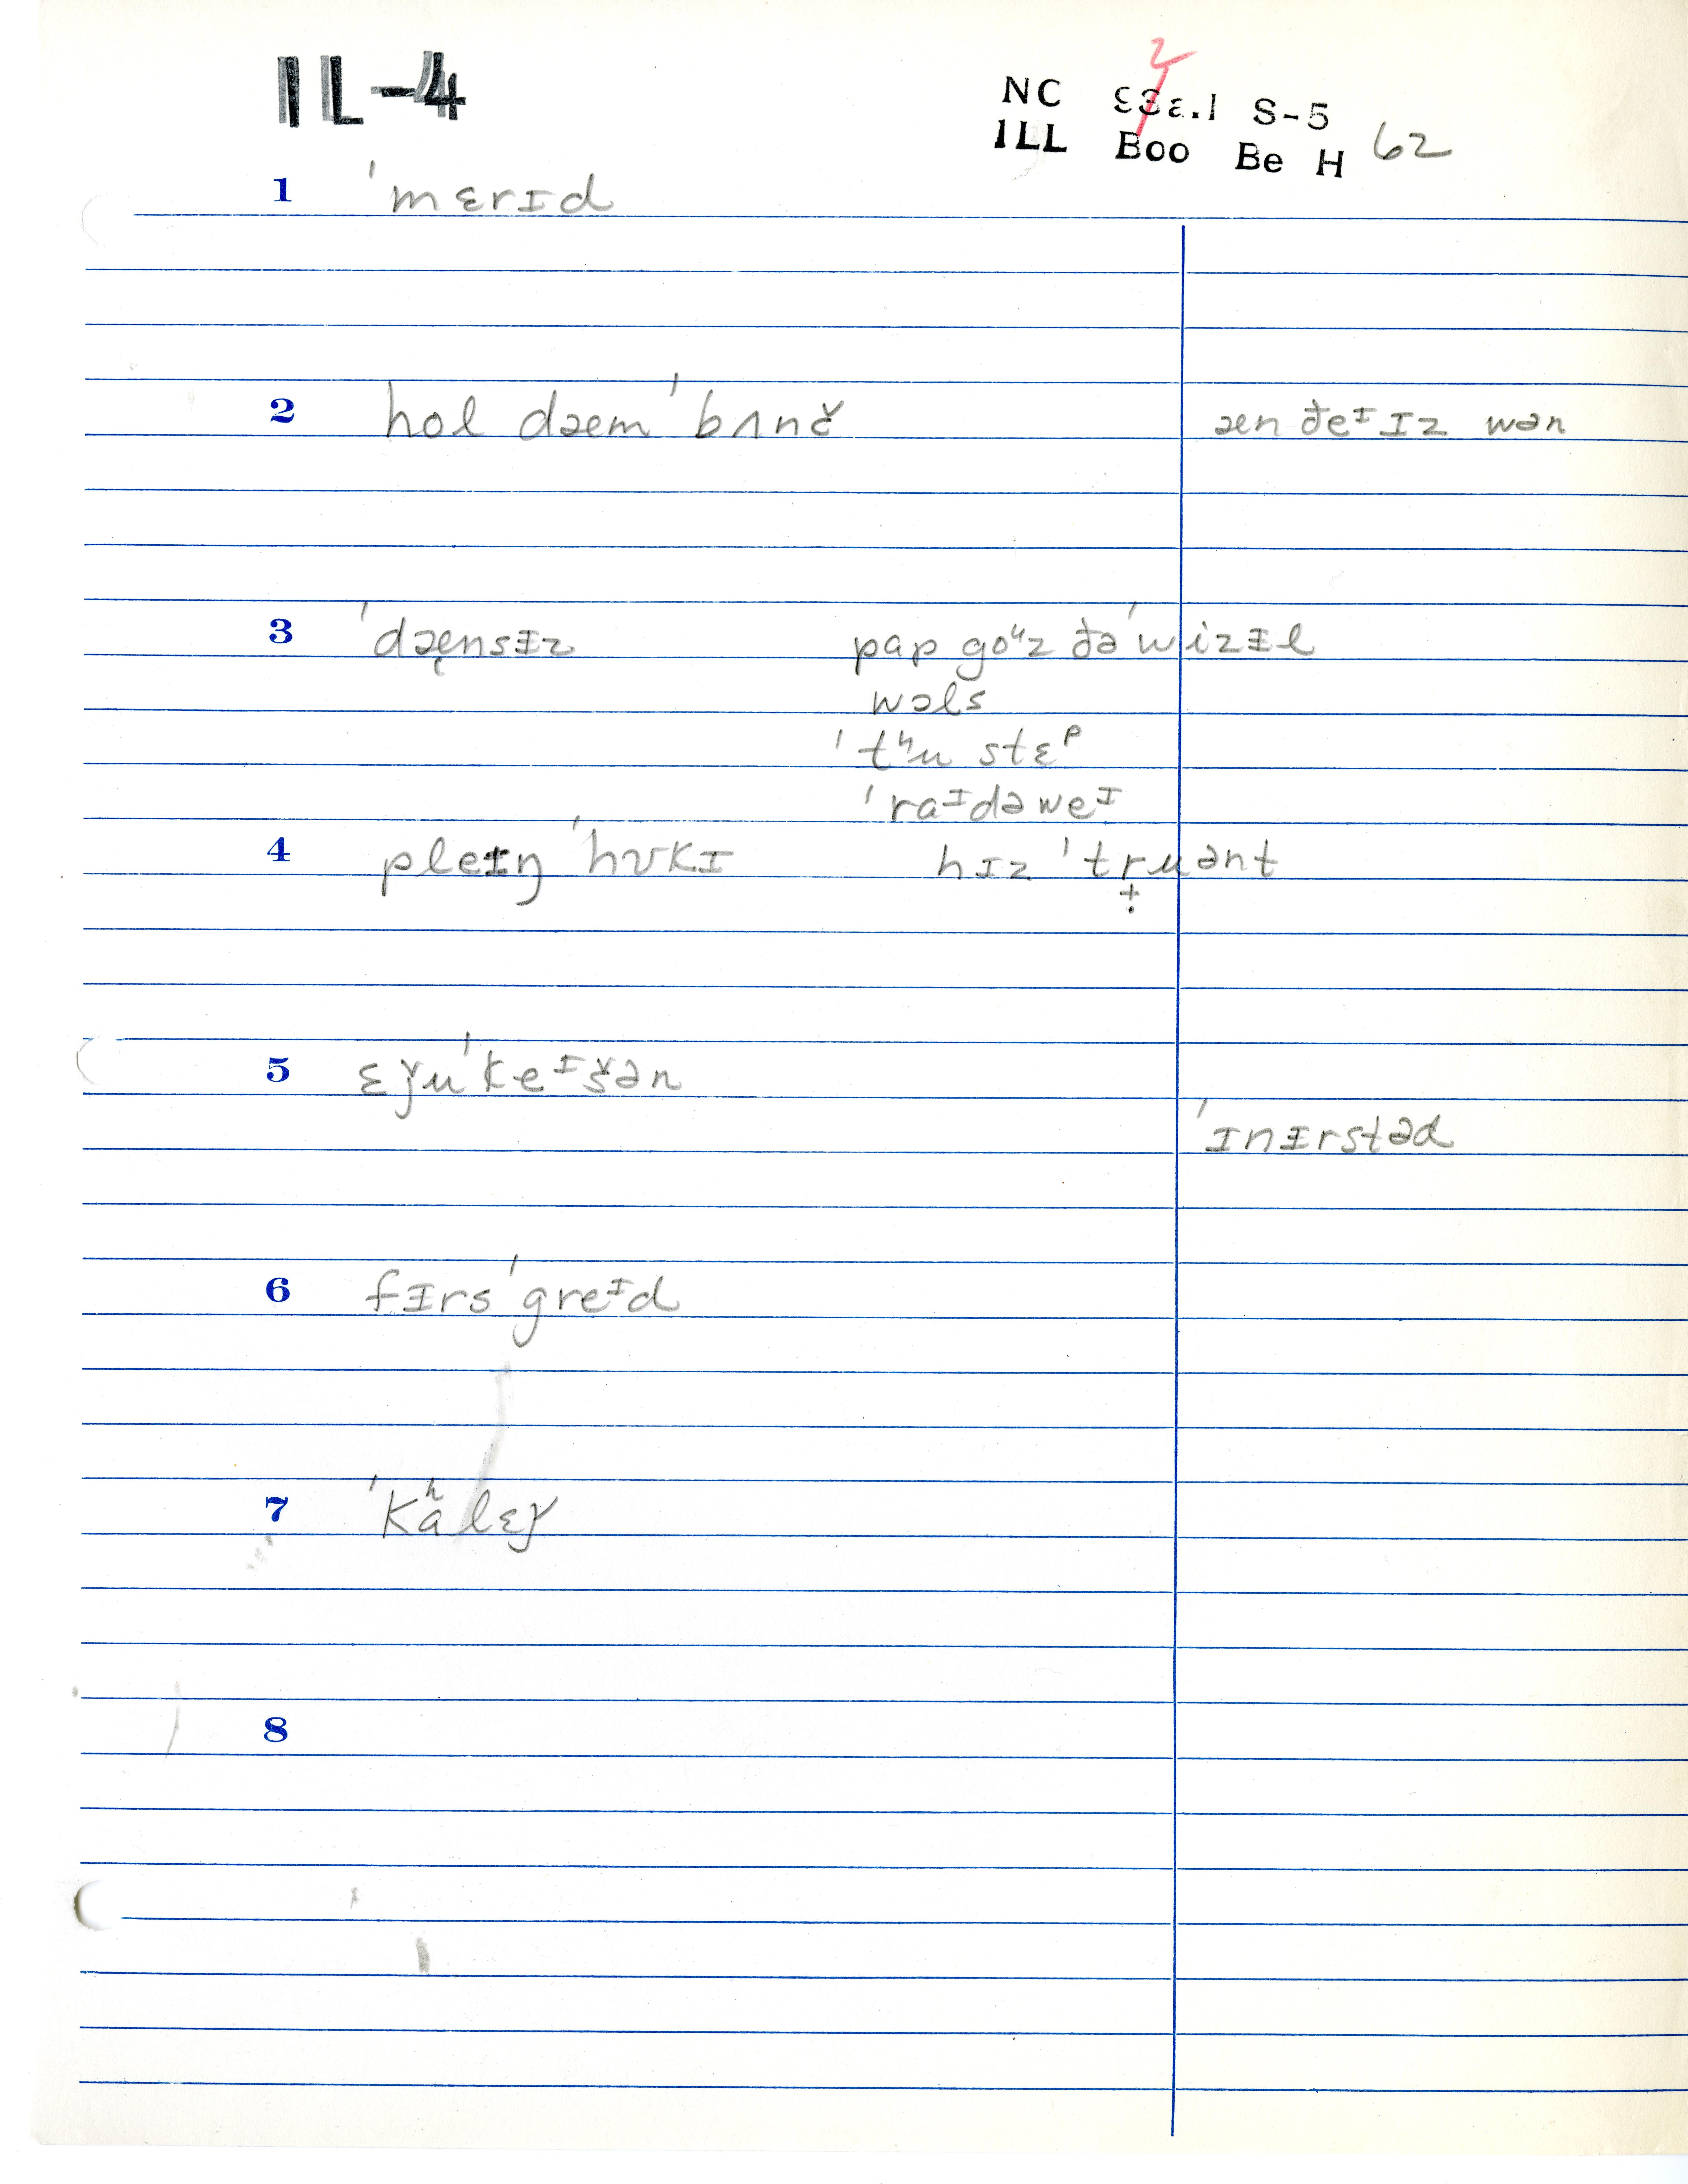 IL-4
NC ɛ3ɛ.1 S-5
ILL Boo Be H 62
2
1 ˈmɛrɪd
2 hol dæm ˈbʌnč æn ðeᶦ ɪz wən
3 ˈdæ̨nsɪz pap goᵘz ðə ˈwizɪl
wɔls
ˈtʰu stɛᵖ
ˈraᶦdəweᶦ
4 pleɪŋ ˈhʊkɪ hɪz ˈtruənt
5 ɛǰuˈkeᶦšən
ˈɪnɪrstəd
6 fɪrs ˈgreᶦd
7 ˈkʰalɛǰ
8